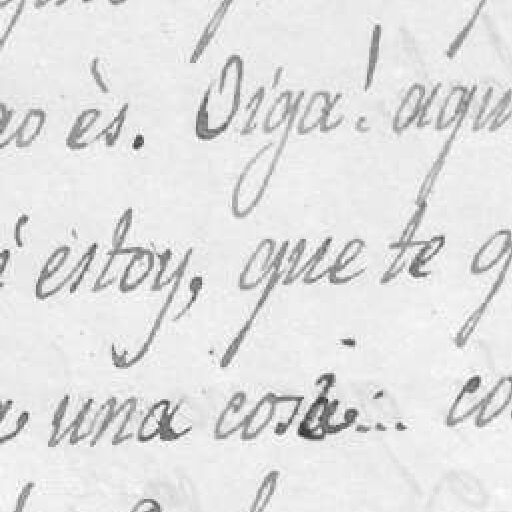 ao ès. Oiga! aqu
estoy, que te q
una cosa... co